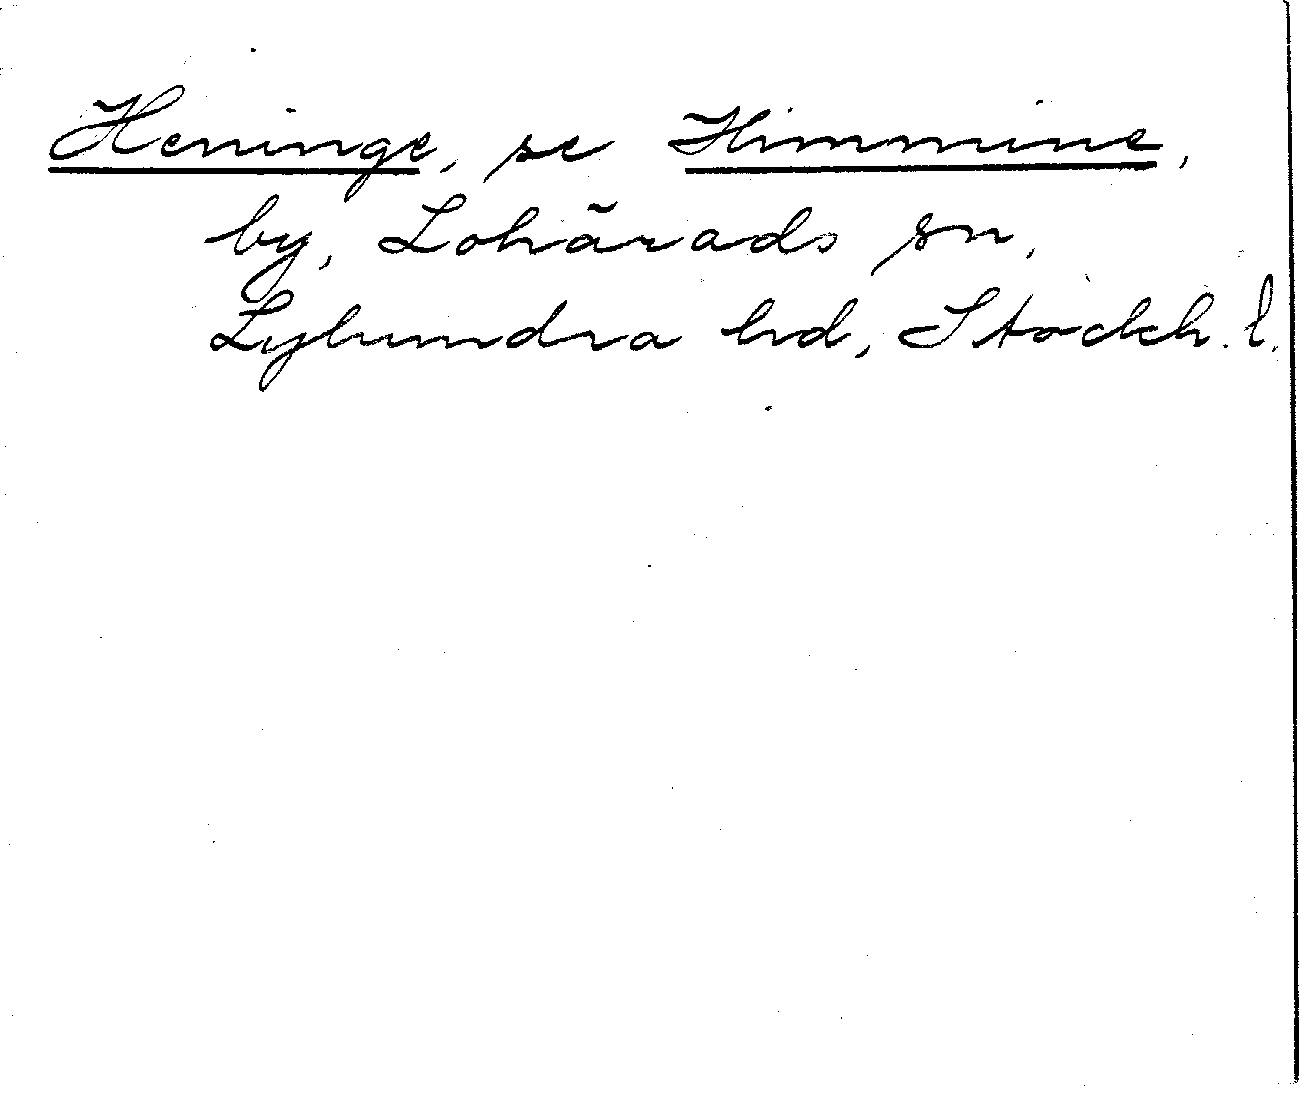 Heninge, se Himmine,
by, Lohärads sn,
Lyhundra hd, Stockh. l.